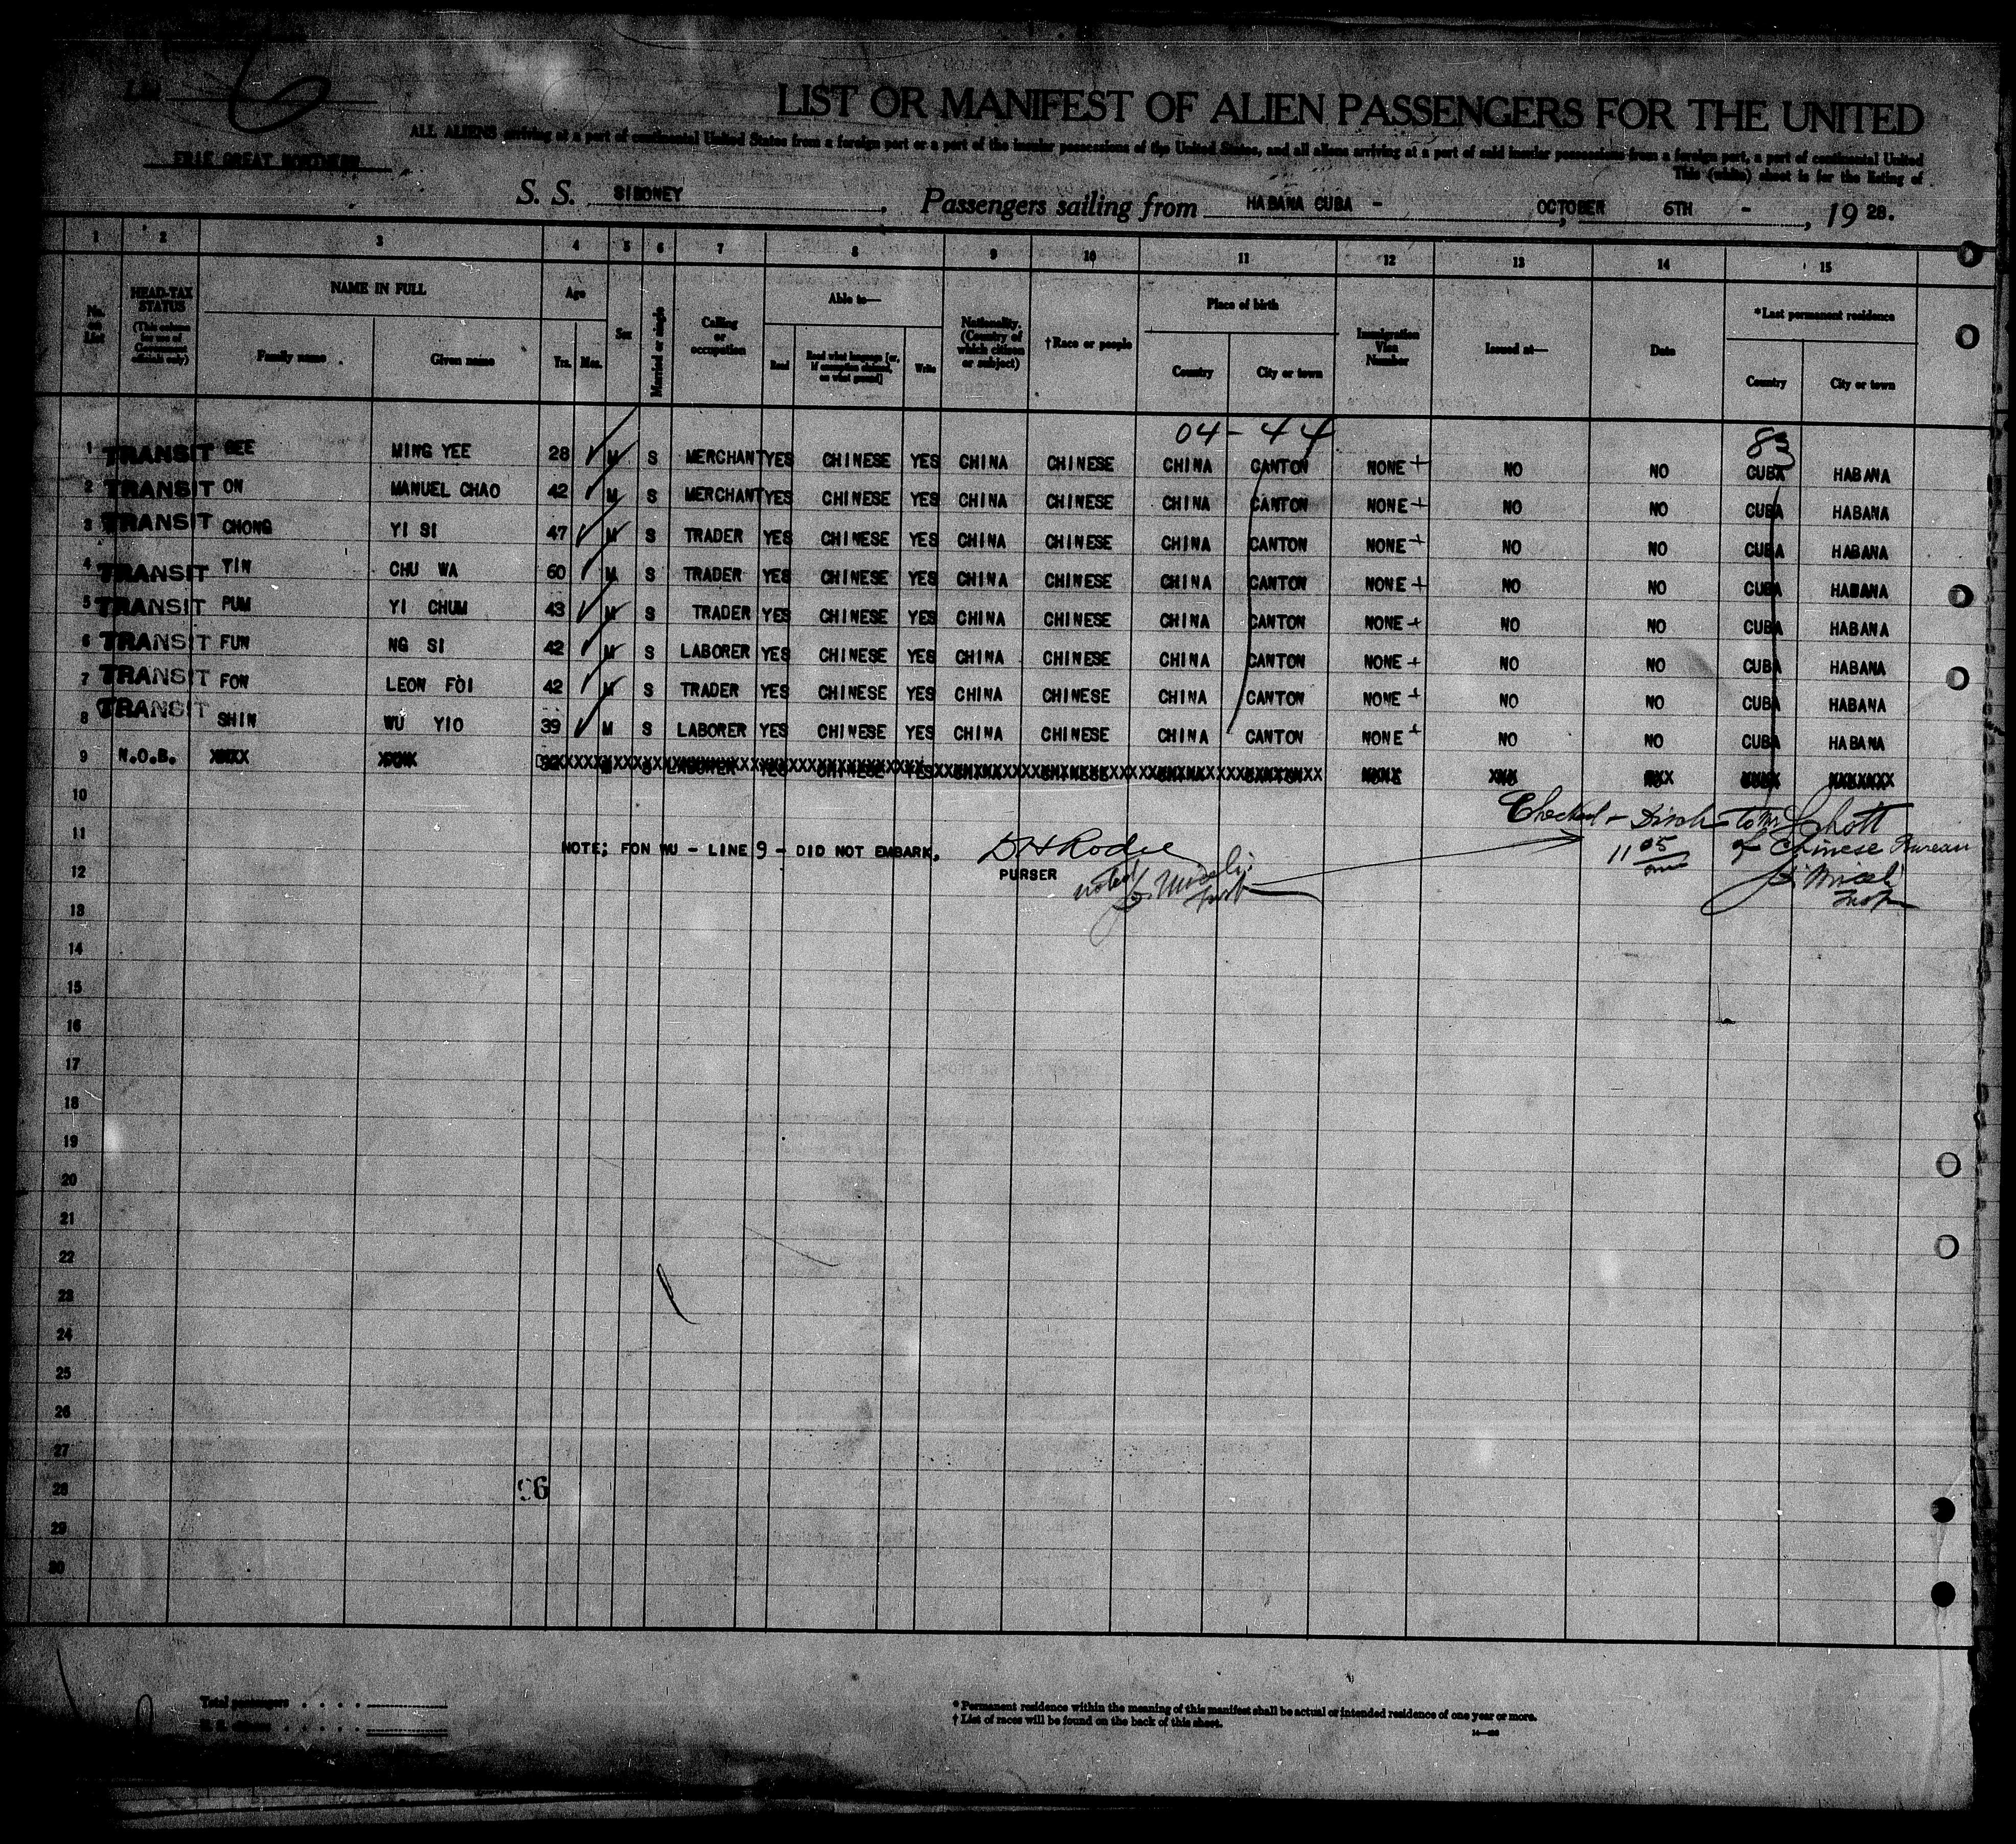 List 6
LIST OR MANIFEST OF ALIEN PASSENGERS FOR THE UNITED
ALL ALIENS arriving at a port of continental United States from a foreign port or a port of the insular possessions of the United States, and all aliens arriving at a port of said insular possessions from a foreign port, a port of continental United
ERIE GREAT NORTHERN
This (white) sheet is for the listing of
S. S. SIBONEY , Passengers sailing from HABANA CUBA - , OCTOBER 6TH - , 19 28.
1 2 3 4 5 6 7 8 9 10 11 12 13 14 15
No. on List
HEAD-TAX STATUS (This column for use of Government officials only)
NAME IN FULL
Family name Given name
Age
Yrs. Mos.
Sex
Married or single
Calling or occupation
Able to—
Read Read what language [or, if exemption claimed, on what ground] Write
Nationality. (Country of which citizen or subject)
†Race or people
Place of birth
Country City or town
Immigration Visa Number
Issued at—
Date
*Last permanent residence
Country City or town
04-44 83
1 TRANSIT GEE MING YEE 28 M S MERCHANT YES CHINESE YES CHINA CHINESE CHINA CANTON NONE + NO NO CUBA HABANA
2 TRANSIT ON MANUEL CHAO 42 M S MERCHANT YES CHINESE YES CHINA CHINESE CHINA CANTON NONE + NO NO CUBA HABANA
3 TRANSIT CHONG YI SI 47 M S TRADER YES CHINESE YES CHINA CHINESE CHINA CANTON NONE + NO NO CUBA HABANA
4 TRANSIT YIN CHU WA 60 M S TRADER YES CHINESE YES CHINA CHINESE CHINA CANTON NONE + NO NO CUBA HABANA
5 TRANSIT PUM YI CHUM 43 M S TRADER YES CHINESE YES CHINA CHINESE CHINA CANTON NONE + NO NO CUBA HABANA
6 TRANSIT FUN NG SI 42 M S LABORER YES CHINESE YES CHINA CHINESE CHINA CANTON NONE + NO NO CUBA HABANA
7 TRANSIT FON LEON FOI 42 M S TRADER YES CHINESE YES CHINA CHINESE CHINA CANTON NONE + NO NO CUBA HABANA
8 TRANSIT SHIN WU YIO 39 M S LABORER YES CHINESE YES CHINA CHINESE CHINA CANTON NONE + NO NO CUBA HABANA
9 N.O.B.
10
Checked - Disch to Mr Schott
11 NOTE; FON WU - LINE 9 - DID NOT EMBARK.
11 05 am of Chinese Bureau
12 PURSER
noted
Insp
13
14
15
16
17
18
19
20
21
22
23
24
25
26
27
28 96
29
30
Total passengers . . . .
U. S. citizens . . . . .
* Permanent residence within the meaning of this manifest shall be actual or intended residence of one year or more.
† List of races will be found on the back of this sheet.